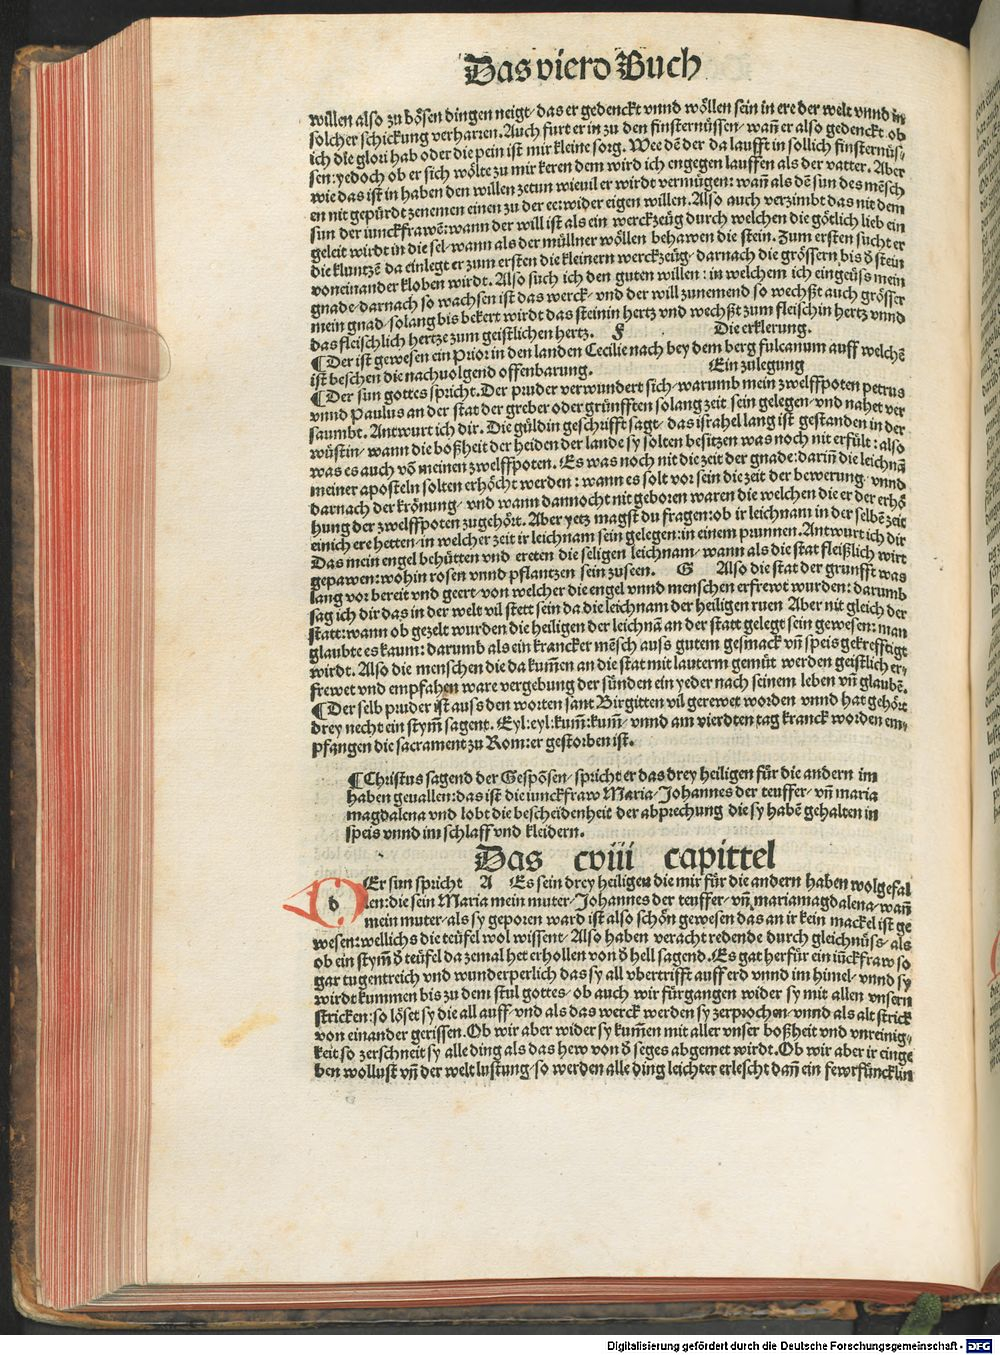 Das vierd Buch
willen also zu bösen dingen neigt/ das er gedenckt vnnd wöllen sein in ere der welt vnnd in
solcher schickung verharren. Auch fürt er in zu den finsternüssen/ wañ er also gedenckt. ob
ich die glori hab oder die pein ist mir kleine sorg. Wee dē der da laufft in sollich finsternüs/
sen: yedoch ob er sich wölte zu mir keren dem wird ich engegen lauffen als der vatter. Aber
wie das ist in haben den willen zetun wieuil er wirdt vermügen: wañ als dē sun des mēsch
en nit gepürdt zenemen einen zu der ee: wider eigen willen. Also auch verzimbt das nit dem
sun der iunckfrawē: wann der will ist als ein werckzeüg durch welchen die götlich lieb ein
geleit wirdt in die sel/ wann als der müllner wöllen behawen die stein. Zum ersten sucht er
die kluntzē da einlegt er zum ersten die kleinern werckzeüg/ darnach die grössern bis d̄ stein
voneinander kloben wirdt. Also such ich den guten willen: in welchem ich eingeüss mein
gnade/ darnach so wachsen ist das werck/ vnd der will zunemend so wechßt auch grösser
mein gnad/ solang bis bekert wirdt das steinin hertz vnd wechßt zum fleischin hertz vnnd
das fleischlich hertze zum geistlichen hertz. F Die erklerung.
¶ Der ist gewesen ein Prior in den landen Cecilie nach bey dem berg fulcanum auff welchē
ist beschen die nachuolgend offenbarung. Ein zulegung
¶ Der sun gottes spricht. Der pruder verwundert sich/ warumb mein zwelffpoten petrus
vnnd Paulus an der stat der greber oder grünfften solang zeit sein gelegen/ vnd nahet ver
saumbt. Antwurt ich dir. Die güldin geschrifft sagt/ das israhel lang ist gestanden in der
wüstin/ wann die boßheit der heiden der lande sy solten besitzen was noch nit erfült: also
was es auch võ meinen zwelffpoten. Es was noch nit die zeit der gnade: dariñ die leichnā
meiner aposteln solten erhöcht werden: wann es solt vor sein die zeit der bewerung/ vnnd
darnach der krönung/ vnd wann dannocht nit geboren waren die welchen die er der erhö
hung der zwelffpoten zugehört. Aber yetz magst du fragen: ob ir leichnam in der selbē zeit
einich ere hetten/ in welcher zeit ir leichnam sein gelegen: in einem prunnen. Antwurt ich dir
Das mein engel behütten vnd ereten die seligen leichnam/ wann als die stat fleißlich wirt
gepawen: wohin rosen vnnd pflantzen sein zuseen. G Also die stat der grunfft was
lang vor bereit vnd geert/ von welcher die engel vnnd menschen erfrewt wurden: darumb
sag ich dir das in der welt vil stett sein da die leichnam der heiligen ruen Aber nit gleich der
statt: wann ob gezelt wurden die heiligen der leichnā an der statt gelegt sein gewesen: man
glaubte es kaum: darumb als ein krancker mēsch auss gutem gesmack vñ speis gekrefftigt
wirdt. Also die menschen die da kum̄en an die stat mit lauterm gemüt werden geistlich er/
frewet vnd empfahen ware vergebung der sünden ein yeder nach seinem leben vñ glaubē.
¶ Der selb pruder ist auss den worten sant Birgitten vil gerewet worden vnnd hat gehört
drey necht ein stym̄ sagent. Eyl: eyl: kum̄: kum̄/ vnnd am vierdten tag kranck worden em/
pfangen die sacrament zu Rom: er gestorben ist.
¶ Christus sagend der Gespõsen/ spricht er das drey heiligen für die andern im
haben geuallen: das ist die iunckfraw Maria/ Johannes der teuffer/ vñ maria
magdalena vnd lobt die bescheidenheit der abprechung die sy habē gehalten in
speis vnnd im schlaff vnd kleidern.
Das cviii capittel
d Er sun spricht A Es sein drey heiligen die mir für die andern haben wolgefal
len: die sein Maria mein muter/ Johannes der teuffer/ vñ mariamagdalena/ wañ
mein muter/ als sy geporen ward ist also schön gewesen das an ir kein mackel ist ge
wesen: wellichs die teüfel wol wissent/ Also haben veracht redende durch gleichnüss/ als
ob ein stym̄ d̄ teüfel da zemal het erhollen von d̄ hell sagend. Es gat herfür ein iūckfraw so
gar tugentreich vnd wunderperlich das sy all vbertrifft auff erd vnnd im himel/ vnnd sy
wirdt kummen bis zu dem stul gottes/ ob auch wir fürgangen wider sy mit allen vnsern
stricken: so löset sy die all auff/ vnd als das werck werden sy zerprochen/ vnnd als alt strick
von einander gerissen. Ob wir aber wider sy kum̄en mit aller vnser boßheit vnd vnreinig/
keit so zerschneit sy alle ding als das hew von d̄ seges abgemet wirdt. Ob wir aber ir einge
ben wollust vñ der welt lustung/ so werden alle ding leichter erlescht dañ ein fewrfüncklin
Digitalisierung gefördert durch die Deutsche Forschungsgemeinschaft - DFG